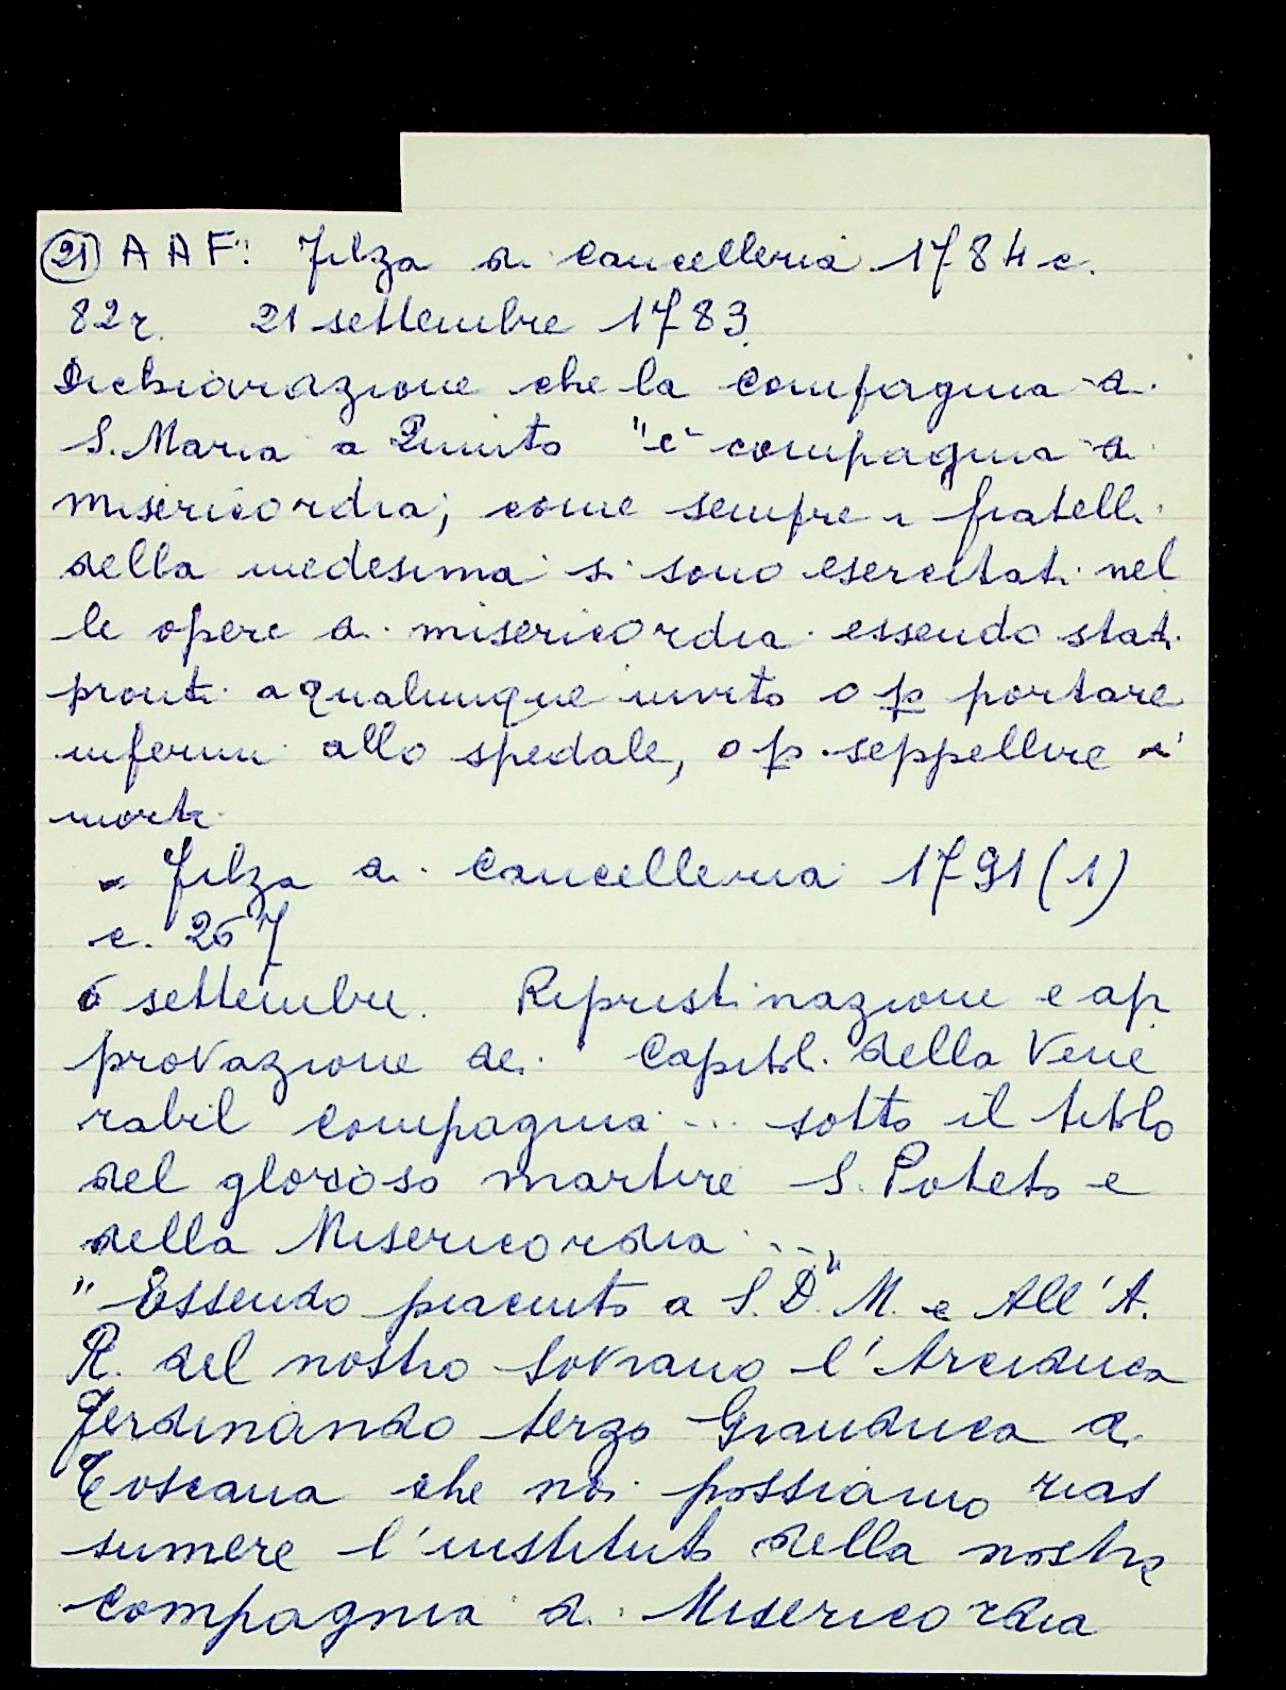 (21) A A F: Filza di cancelleria 1784 c.
82r. 21 settembre 1783.
Dichiarazione che la compagnia di
S. Maria a Quinto "è compagnia di
misericordia; come sempre i fratelli
della medesima si sono esercitati nel
le opere di misericordia essendo stati
pronti a qualunque invito o p portare
infermi allo spedale, o p seppellire i
morti
- Filza di Cancelleria 1791 (1)
c. 267
6 settembre. Ripristinazione e ap
provazione dei Capitoli della Vene
rabil compagnia ... sotto il titolo
del glorioso martire S. Poteto e
della Misericordia ..."
"Essendo piaciuto a S. D. M. e All'A.
R. del nostro Sovrano l'Arciduca
Ferdinando terzo Granduca di
Toscana che noi possiamo rias
sumere l'instituto della nostra
Compagnia di Misericordia